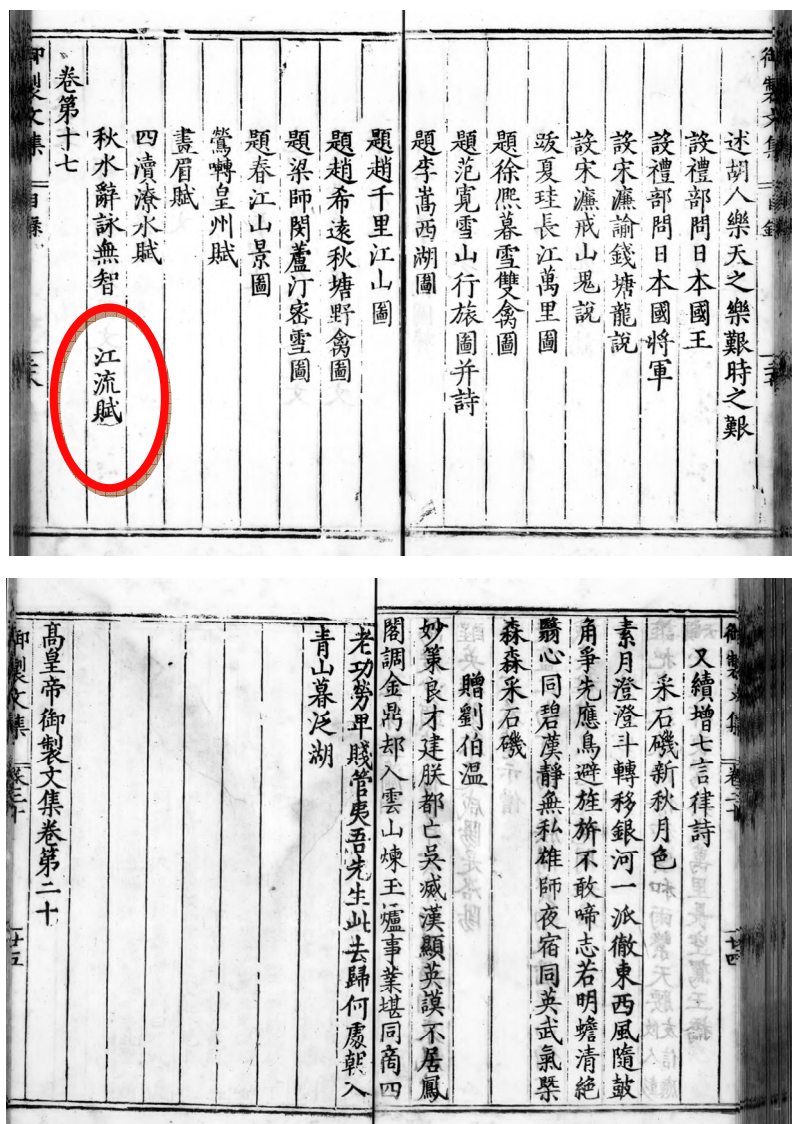 御製文集
目錄
述胡人樂天之樂艱時之艱
設禮部問日本國王
設禮部問日本國將軍
設宋濂諭錢塘龍說
設宋濂戒山鬼說
跋夏珪長江萬里圖
題徐熈暮雪雙禽圖
題范寬雪山行旅圖并詩
題李嵩西湖圖
題趙千里江山圖
題趙希遠秋塘野禽圖
題梁師閔蘆汀密雪圖
題春江山景圖
鶯囀皇州賦
畫眉賦
四瀆潦水賦
秋水辭詠無智 江流賦
卷第十七
御製文集
目錄
御製文集
卷二十
廿四
又續增七言律詩
采石磯新秋月色
素月澄澄斗轉移銀河一派徹東西風隨鼓
角爭先應鳥避旌旂不敢啼志若明蟾清絕
翳心同碧漢靜無私雄師夜宿同英武氣槩
森森采石磯
贈劉伯溫
妙策良才建朕都亡吳滅漢顯英謨不居鳳
閣調金鼎却入雲山煉玉爐事業堪同商四
老功勞卑賤管夷吾先生此去歸何處朝入
青山暮泛湖
高皇帝御製文集卷第二十
御製文集
卷二十
廿五